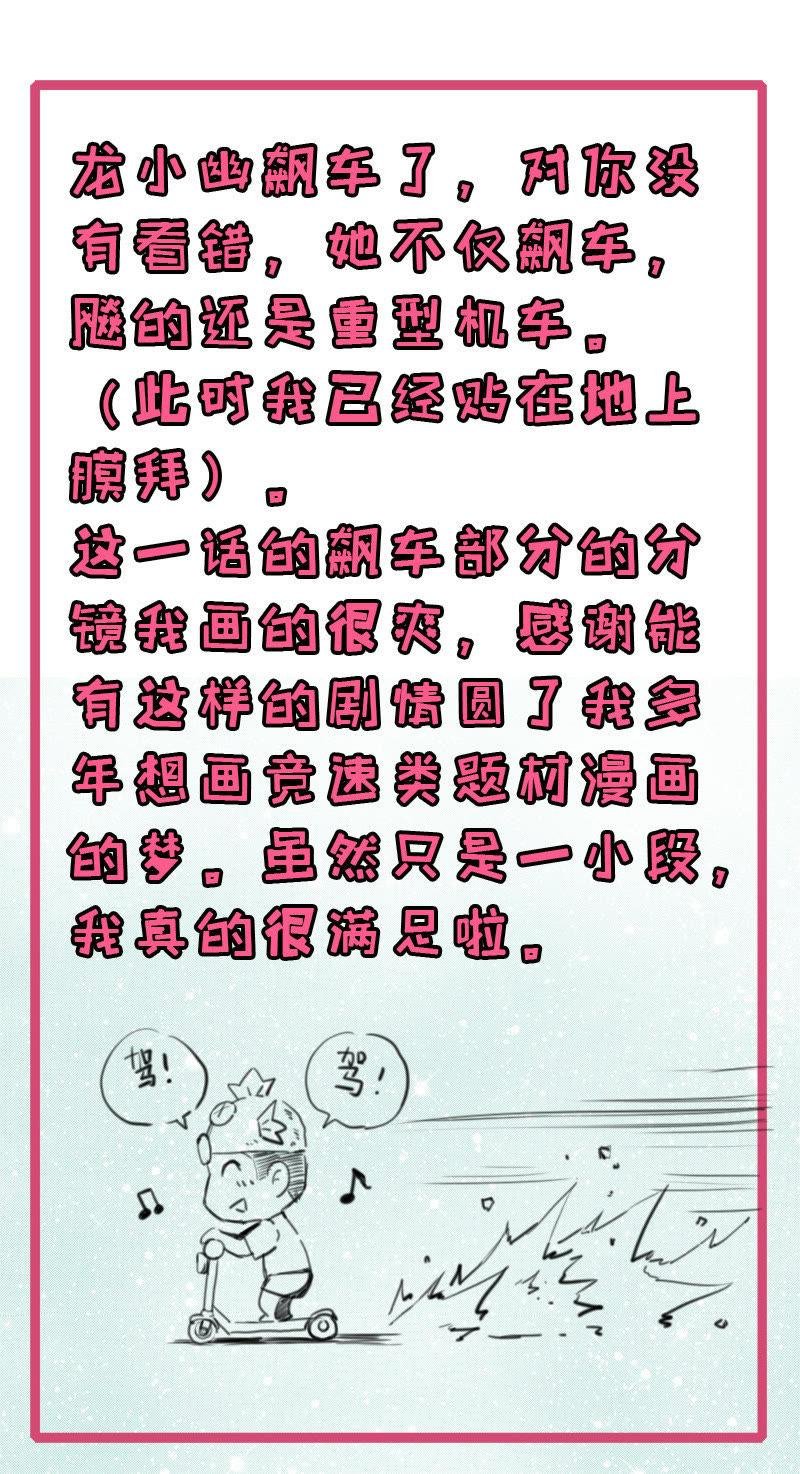 龙小幽飙车了，对你没
有看错，她不仅飙车，
飚的还是重型机车。
（此时我已经贴在地上
膜拜）。
这一话的飙车部分的分
镜我画的很爽，感谢能
有这样的剧情圆了我多
年想画竞速类题材漫画
的梦。虽然只是一小段，
我真的很满足啦。
驾！
驾！